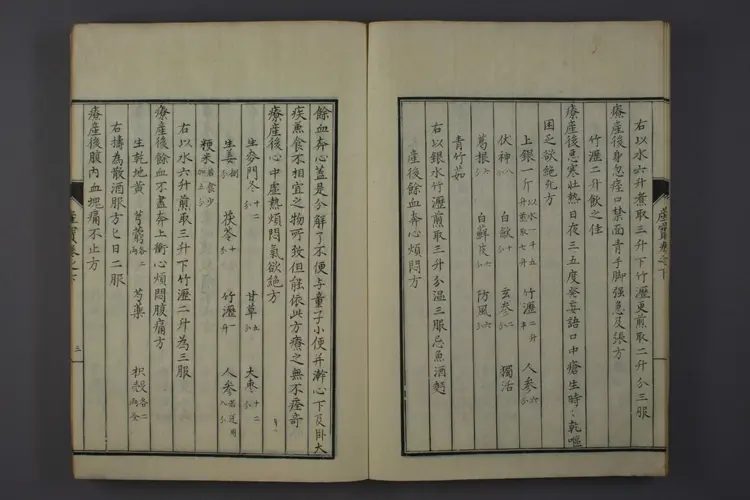 右以水六升煮取三升下竹瀝更煎取二升分三服
療産後身忽痙口禁面青手脚强急反張方
竹瀝二升飲之佳
療産後患寒壯熱日夜三五度發妄語口中瘡生時〻乾嘔
困乏欲絶死方
上銀一斤以水一斗五升煮取七升 竹瀝二升 人參六分
伏神八分 白鮮十分 玄參二分 獨活
葛根八分 白蘚皮六分 防風六分
青竹茹
右以銀水竹瀝煎取三升分温三服忌魚酒麪
産後餘血奔心煩悶方
産寳卷之下
餘血奔心蓋是分解了不便與童子小便并𢷬心下及卧太
疾兼食不相宜之物所致但能依此方療之無不痊奇
療産後心中虚熱煩悶氣欲絶方
生麥門冬十二分 甘草五分 太棗十二分
生姜捌分 茯苓十分 竹瀝一升 人參八分
粳米
右以水六升煎取三升下竹瀝二升為三服
療産後餘血不盡奔上衝心煩悶腹痛方
生乾地黄 芎藭各二兩 芍藥 枳殻各二兩
右擣為散酒服方匕日二服
療産後腹内血塊痛不止方
産寳卷之下
三